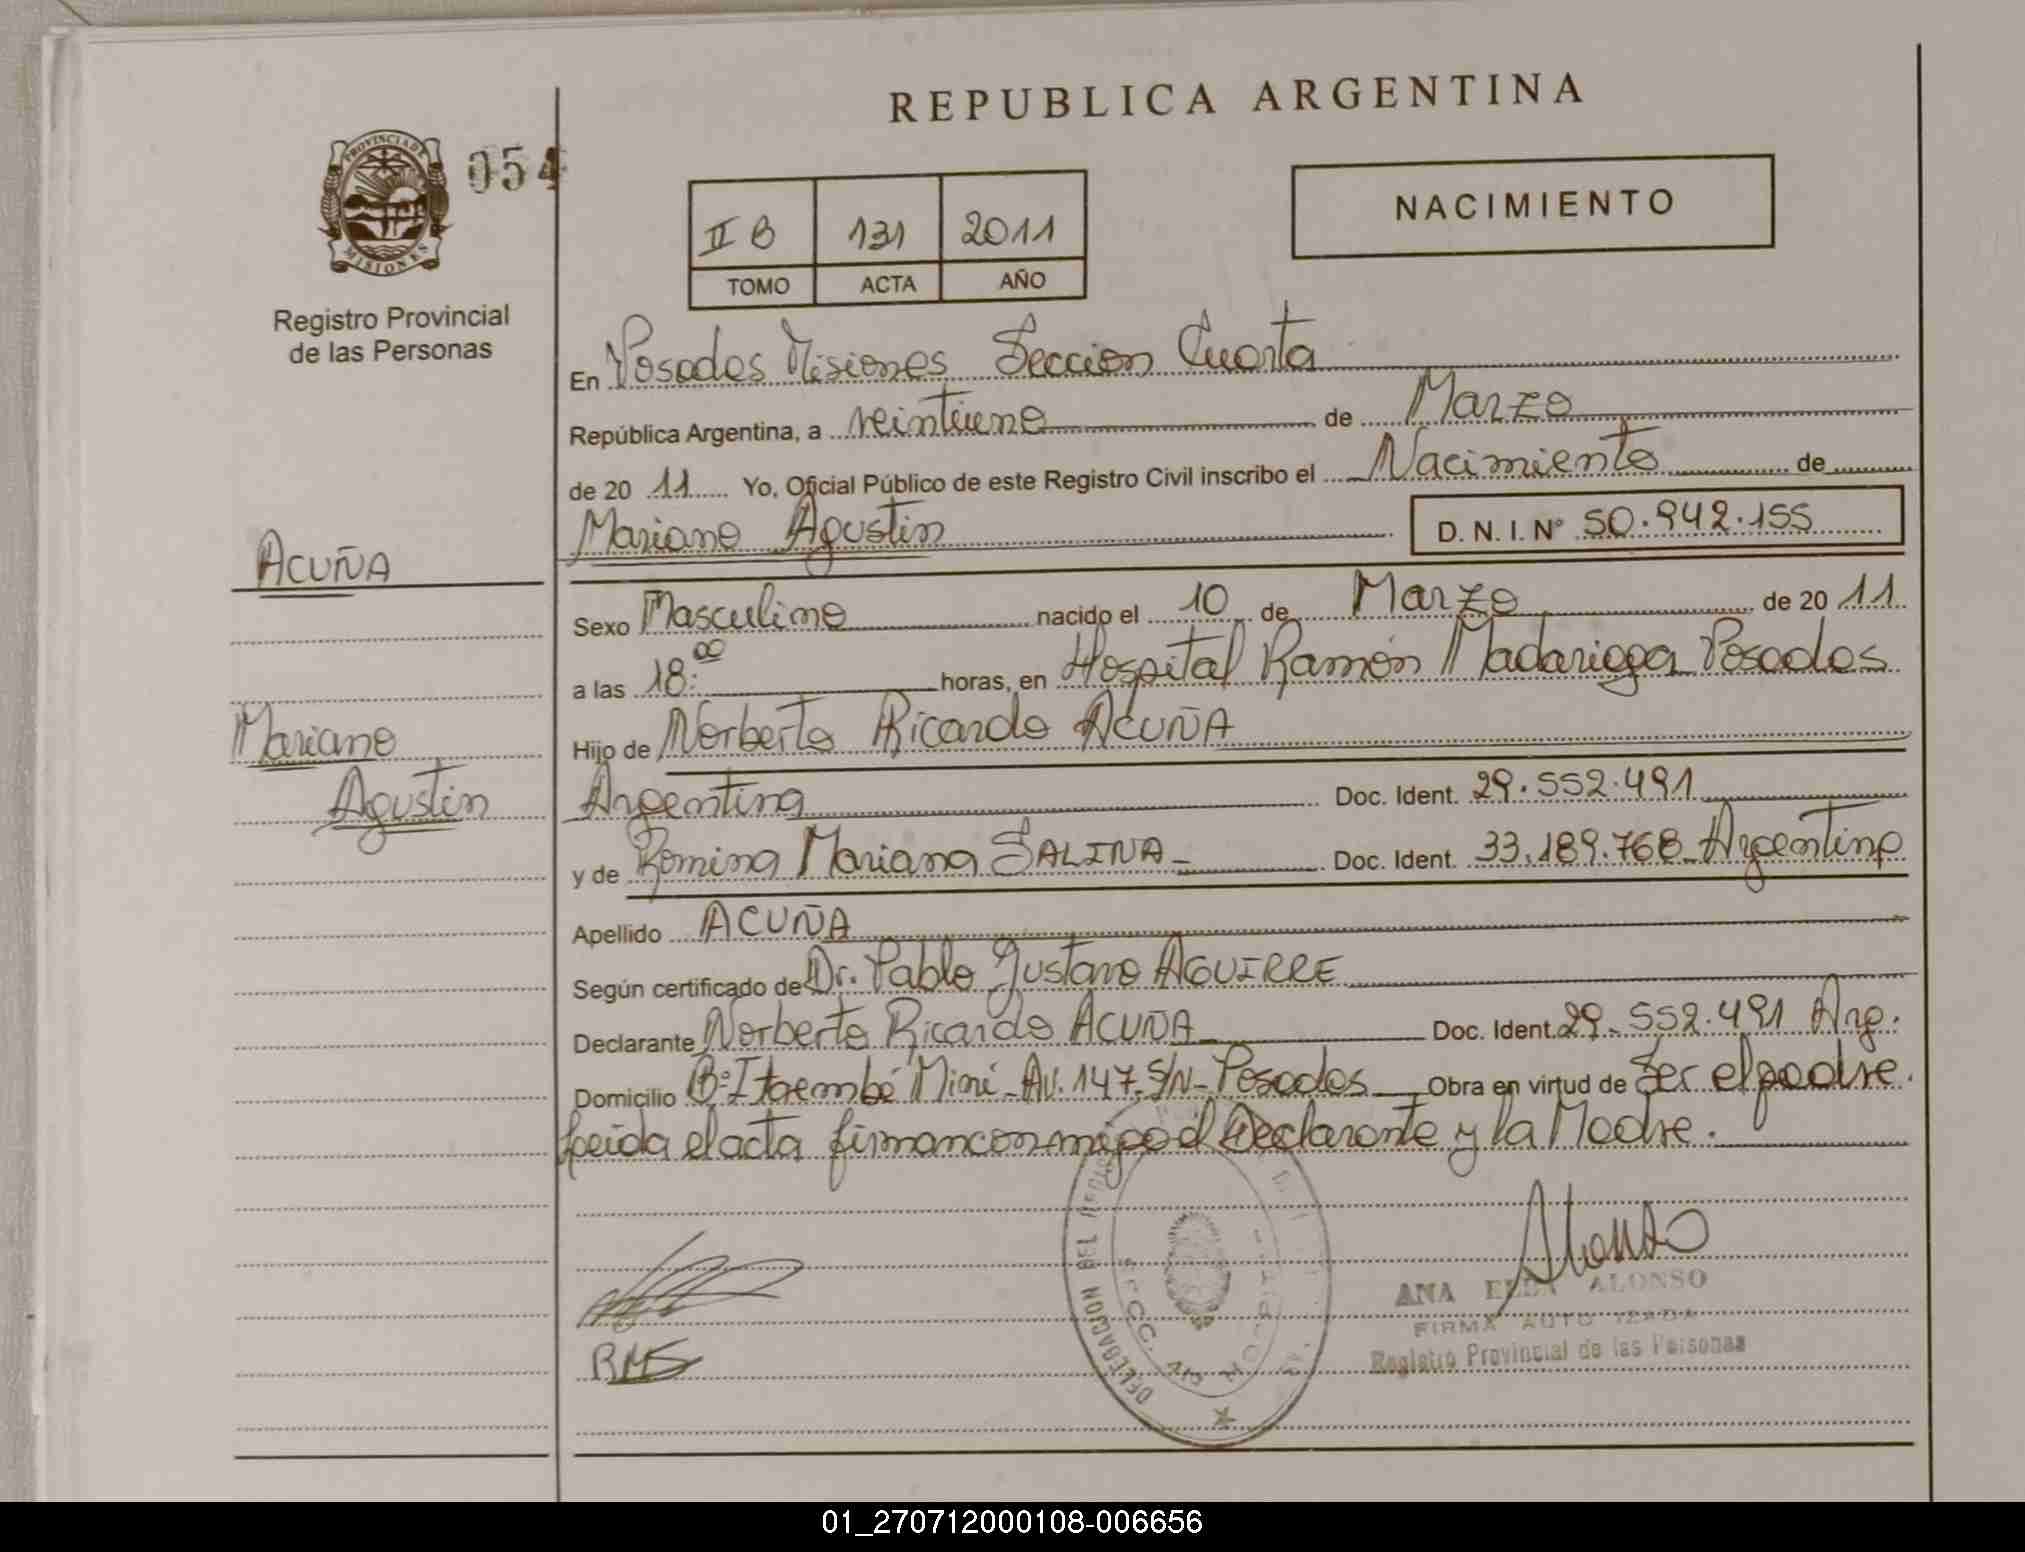 REPUBLICA ARGENTINA
PROVINCIA DE
MISIONES
054
Registro Provincial
de las Personas
II B 131 2011
TOMO ACTA AÑO
NACIMIENTO
En Posadas Misiones Seccion Cuarta
República Argentina, a veintiuno de Marzo
de 20 11 Yo, Oficial Público de este Registro Civil inscribo el Nacimiento de
Mariano Agustin D. N. I. Nº 50.942.155
ACUÑA
Sexo Masculino nacido el 10 de Marzo de 20 11
a las 18:00 horas, en Hospital Ramón Madariaga Posadas
Mariano
Hijo de Norberto Ricardo ACUÑA
Agustin
Argentina Doc. Ident. 29.552.491
y de Romina Mariana SALINA Doc. Ident. 33.189.768 Argentina
Apellido ACUÑA
Según certificado de Dr. Pablo Gustavo AGUIRRE
Declarante Norberto Ricardo ACUÑA Doc. Ident. 29.552.491 Arg.
Domicilio Bº Itaembé Miní Av. 147 S/N Posadas Obra en virtud de Ser el padre.
Leida el acta firman conmigo el Declarante y la Madre.
DELEGACION DEL
SECC.
Alonso
ANA ELBA ALONSO
FIRMA AUTORIZADA
Registro Provincial de las Personas
RMS
01_270712000108-006656